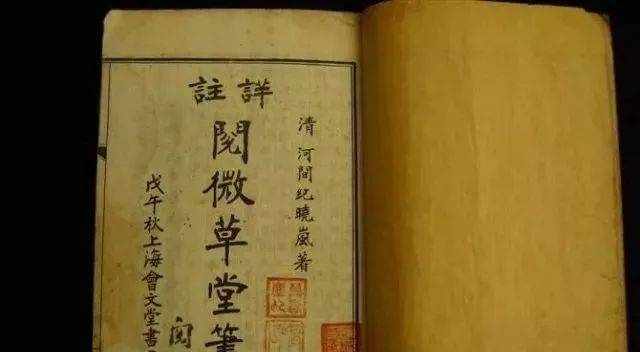 清 河間紀曉嵐著
詳註
閱微草堂筆
戊午秋上海會文堂書